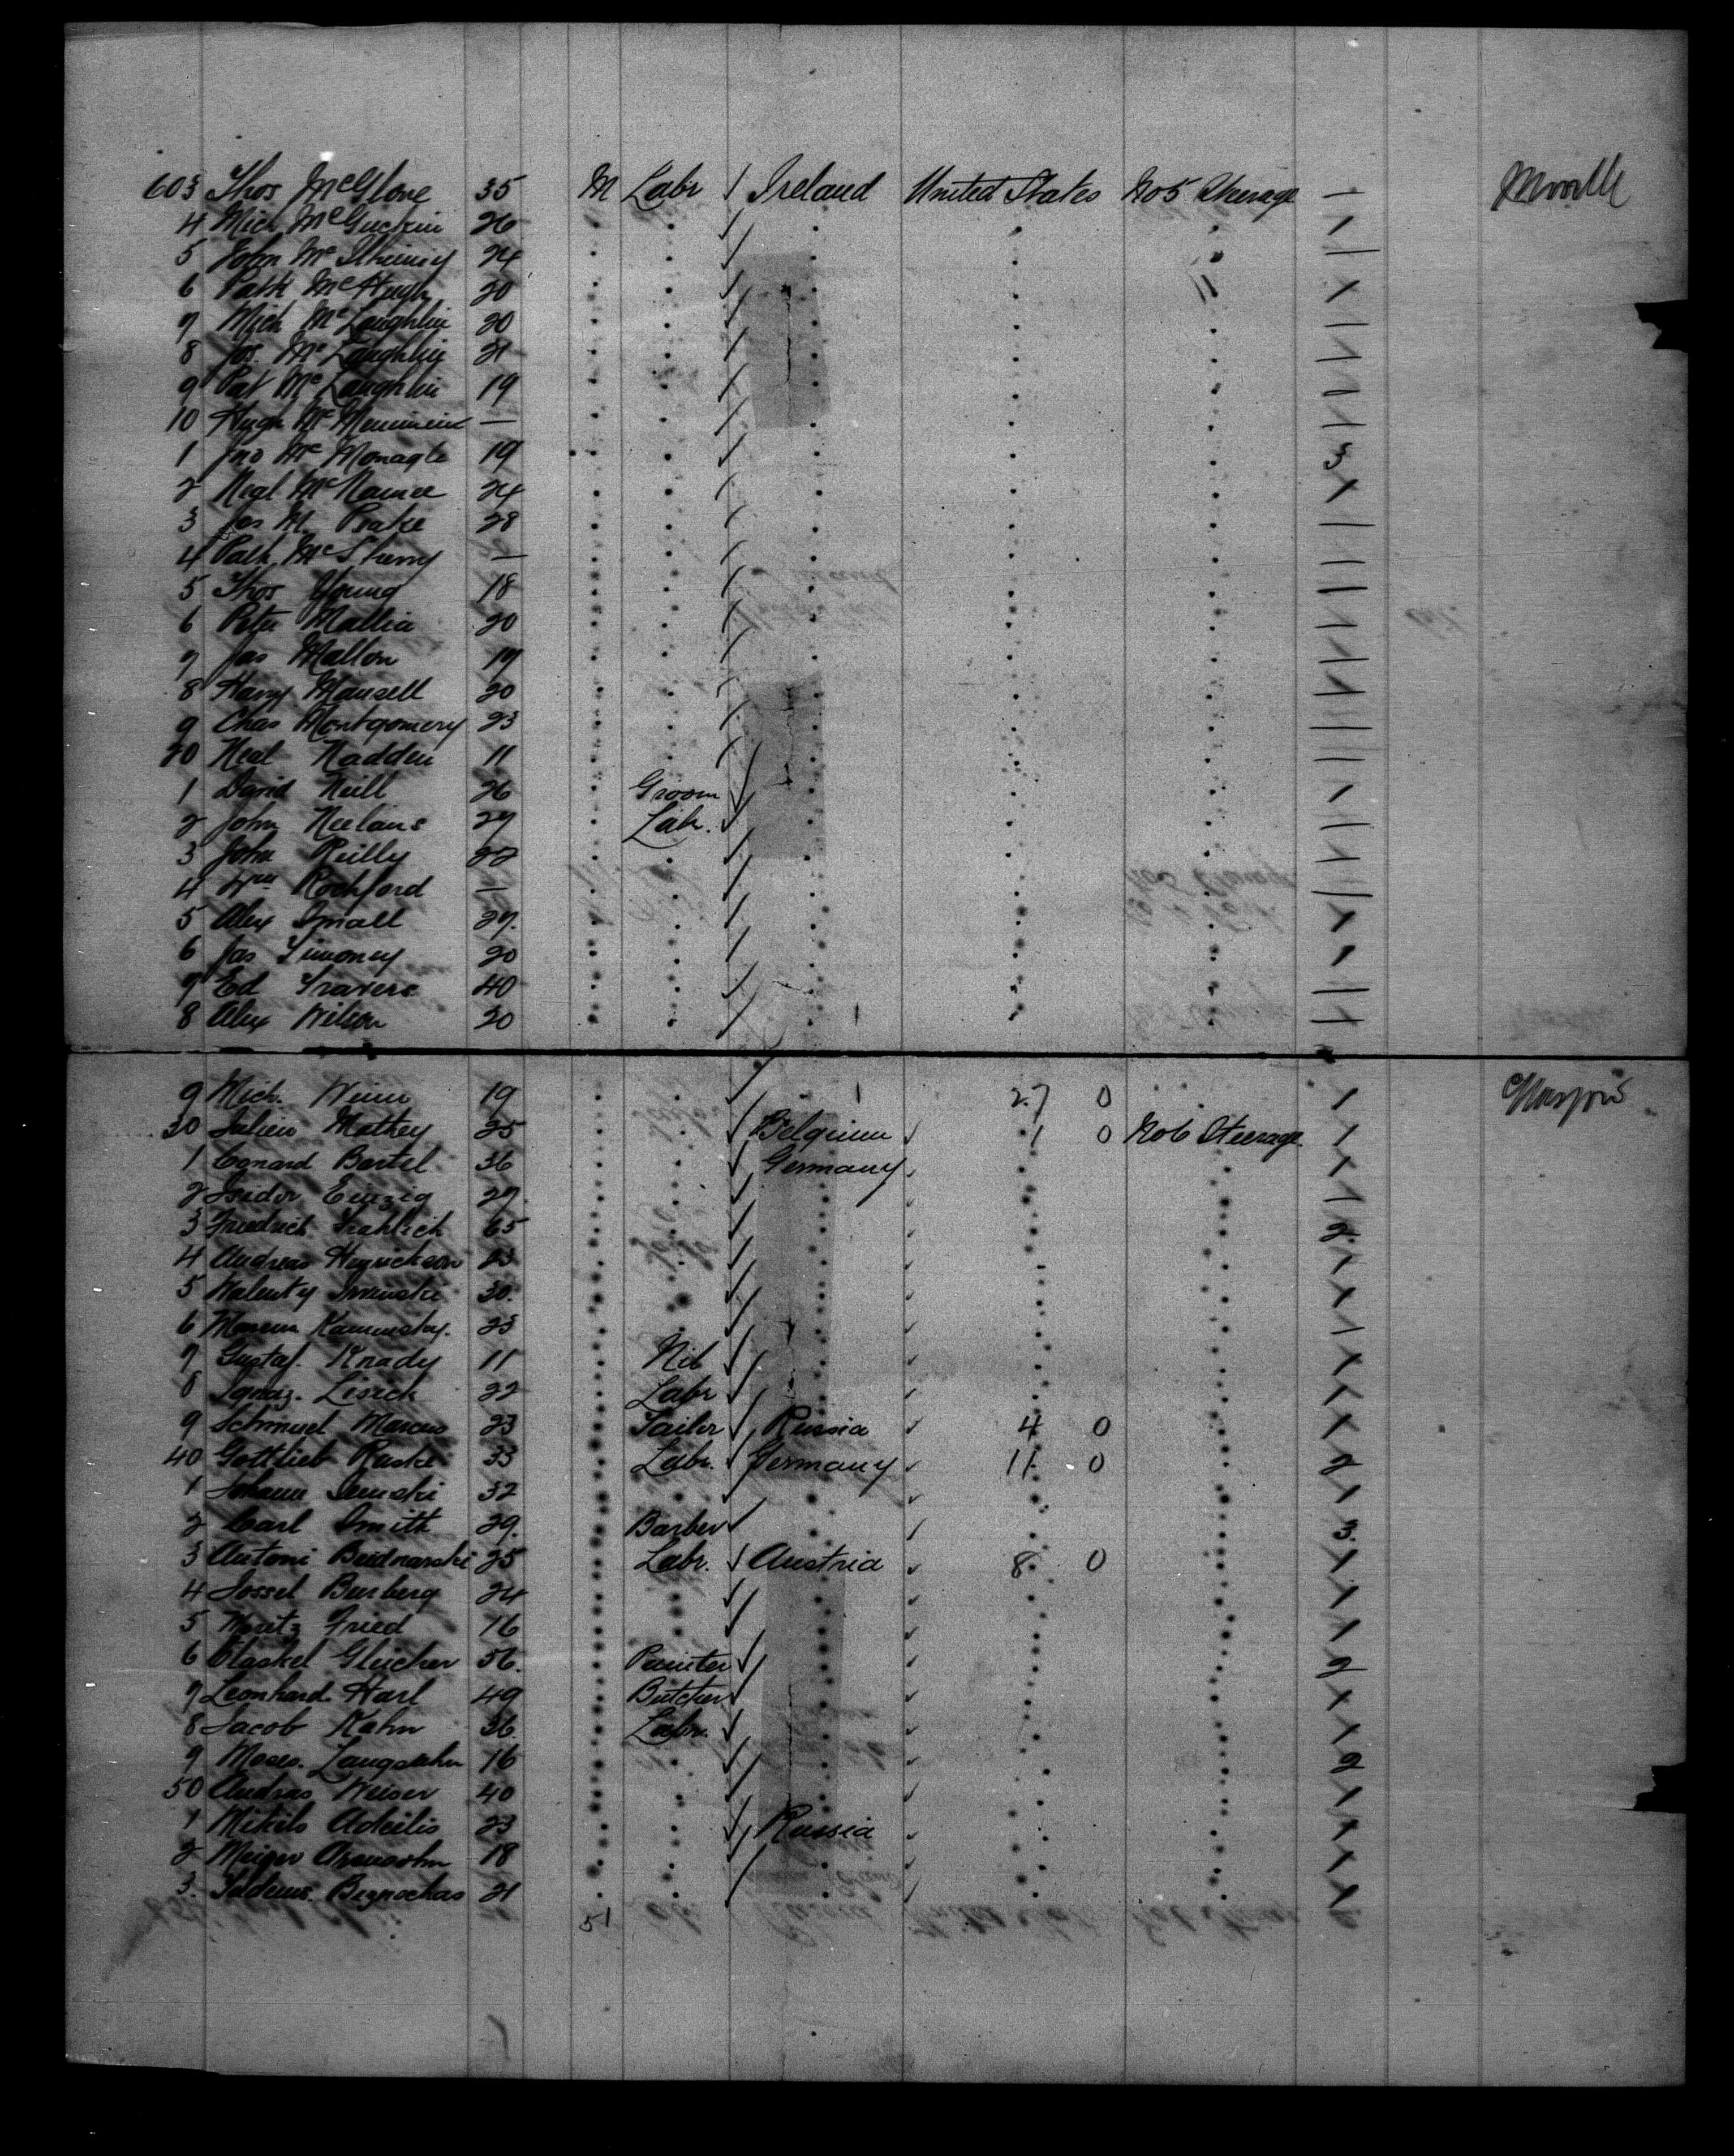 603 Thos McGlone 35 M Labr Ireland United States No5 Steerage 1 Moville
4 Mich McGuckin 26 1
5 John Mc 24 1
6 Patk McHugh 20 1
7 Mich McLaughlin 20 1
8 Jos. McLaughlin 21 1
9 Pat McLaughlin 19 1
10 Hugh Mc — 1
1 Jno McMonagle 19 3
2 Neal McNamee 24 1
3 Jas M. Peake 28 1
4 Patk McSherry — 1
5 Thos Young 18 1
6 Peter Mallia 20 1
7 Jas Mallon 19 1
8 Harry Mansell 20 1
9 Chas Montgomery 23 1
20 Neal Nadden 11 1
1 David Neill 26 Groom 1
2 John Neelans 27 Labr. 1
3 John Reilly 22 1
4 Wm Rochford — 1
5 Alex Small 27. 1
6 Jas Timoney 20 1
7 Ed Travers 40 1
8 Alex Wilson 20 1
9 Mich. 19 27 0 1 Glasgow
30 Julien Mathey 25 Belgium 1 0 No6 Steerage 1
1 Conard Bartel 36 Germany 1
2 Isidor Einzig 27. 1
3 Friedrich 65 2.
4 Andreas 23 1
5 Walenty 30. 1
6 Kaminsky. 25 1
7 Gustaf. Knady 11 Nil 1
8 Ignaz. Lisick 22 Labr 1
9 Schmuel Marcus 23 Tailor Russia 4 0 1
40 Gottlieb Raski 33 Labr. Germany 11 0 2
1 Johann 32 1
2 Carl Smith 29. Barber 3.
3 Antoni Beidnarski 25 Labr. Austria 8 0 1
4 Jossel 24 1
5 Moritz Fried 16 1
6 Gleicher 56. Painter 2
7 Leonhard Harl 49 Butcher 1
8 Jacob Kahn 36 Labr. 1
9 Moses. 16 2
50 Andras Weiser 40 1
1 Mikils 23 Russia 1
2 18 1
3. 21 1
51